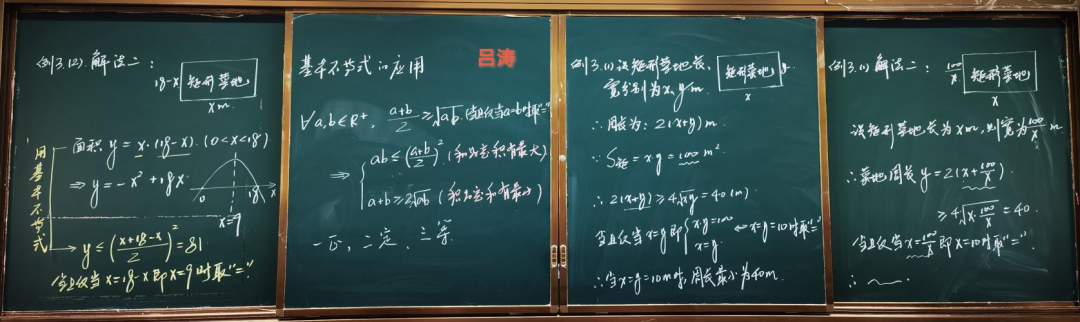 例3.(2).解法二:
18-x 矩形菜地
x m
用基本不等式
面积 y = x·(18-x). (0<x<18)
⇒ y = -x² + 18x
18 x
x=9
y ≤ ((x+18-x)/2)² = 81
当且仅当 x=18-x 即 x=9 时取"="
基本不等式的应用
吕涛
∀a,b∈R⁺, (a+b)/2 ≥ √ab (当且仅当a=b时取"="
⇒ { ab ≤ ((a+b)/2)² (和为定积有最大)
a+b ≥ 2√ab (积为定和有最小)
一正, 二定, 三等.
例3.(1) 设矩形菜地长、
宽分别为x, y m.
矩形菜地 y
x
∴周长为: 2(x+y) m
∵ S矩 = x·y = 100 m²
∴ 2(x+y) ≥ 4√xy = 40 (m)
当且仅当 x=y 即 { xy=100 x=y ⇔ x=y=10时取"="
∴当x=y=10m时, 周长最小为40m.
例3.(1) 解法二:
100/x 矩形菜地
x
设矩形菜地长为 x m, 则宽为 100/x m.
∴菜地周长 y = 2(x+100/x)
≥ 4√(x·100/x) = 40.
当且仅当 x=100/x 即 x=10时取"=".
∴